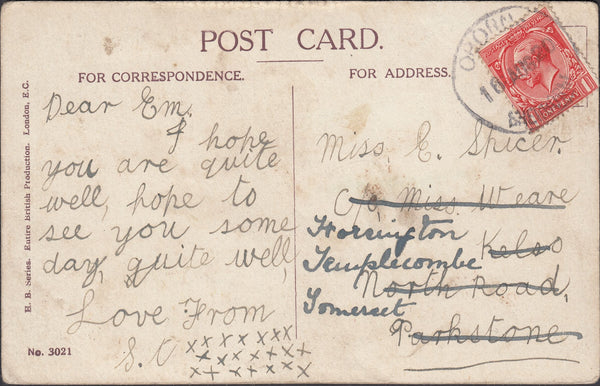 POST CARD.
FOR CORRESPONDENCE.
FOR ADDRESS.
H. B. Series. Entire British Production. London, E.C.
Dear Em.
I hope
you are quite
well, hope to
see you some
day, quite well,
Love From
S. C
xxxxxxx
xxxxxxx
xxxxxxx
No. 3021
Miss. E. Spicer.
C/o Miss. Weare
Horsington
Kelso
Templecombe
North Road,
Somerset
Parkstone
16
ONE PENNY
1